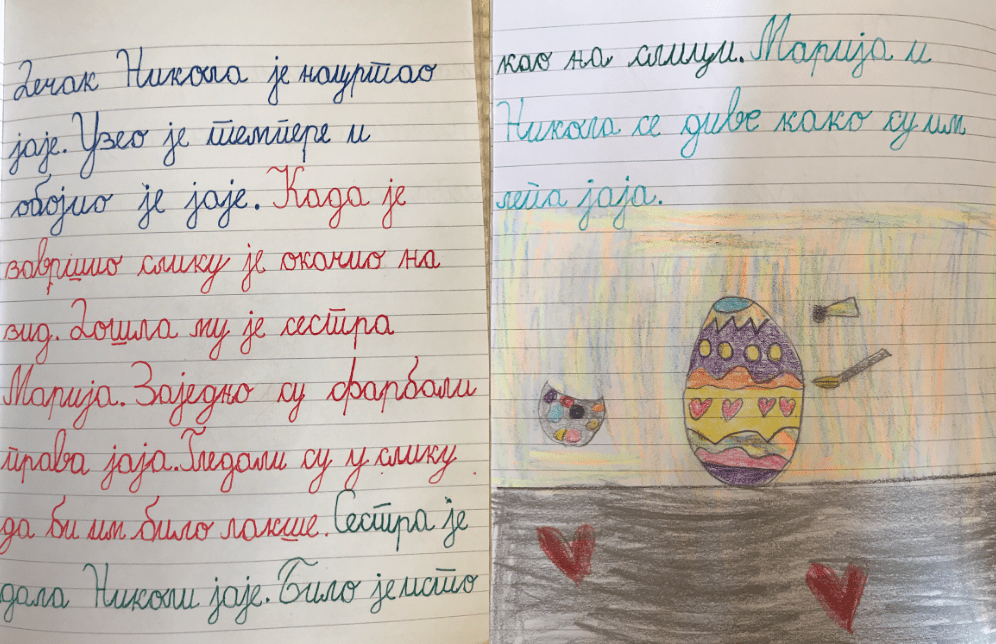 Дечак Никола је нацртао
јаје. Узео је темпере и
обојио је јаје. Када је
завршио слику је окачио на
зид. Дошла му је сестра
Марија. Заједно су фарбали
права јаја. Гледали су у слику
да би им било лакше. Сестра је
дала Николи јаје. Било је исто
као на слици. Марија и
Никола се диве како су им
лепа јаја.